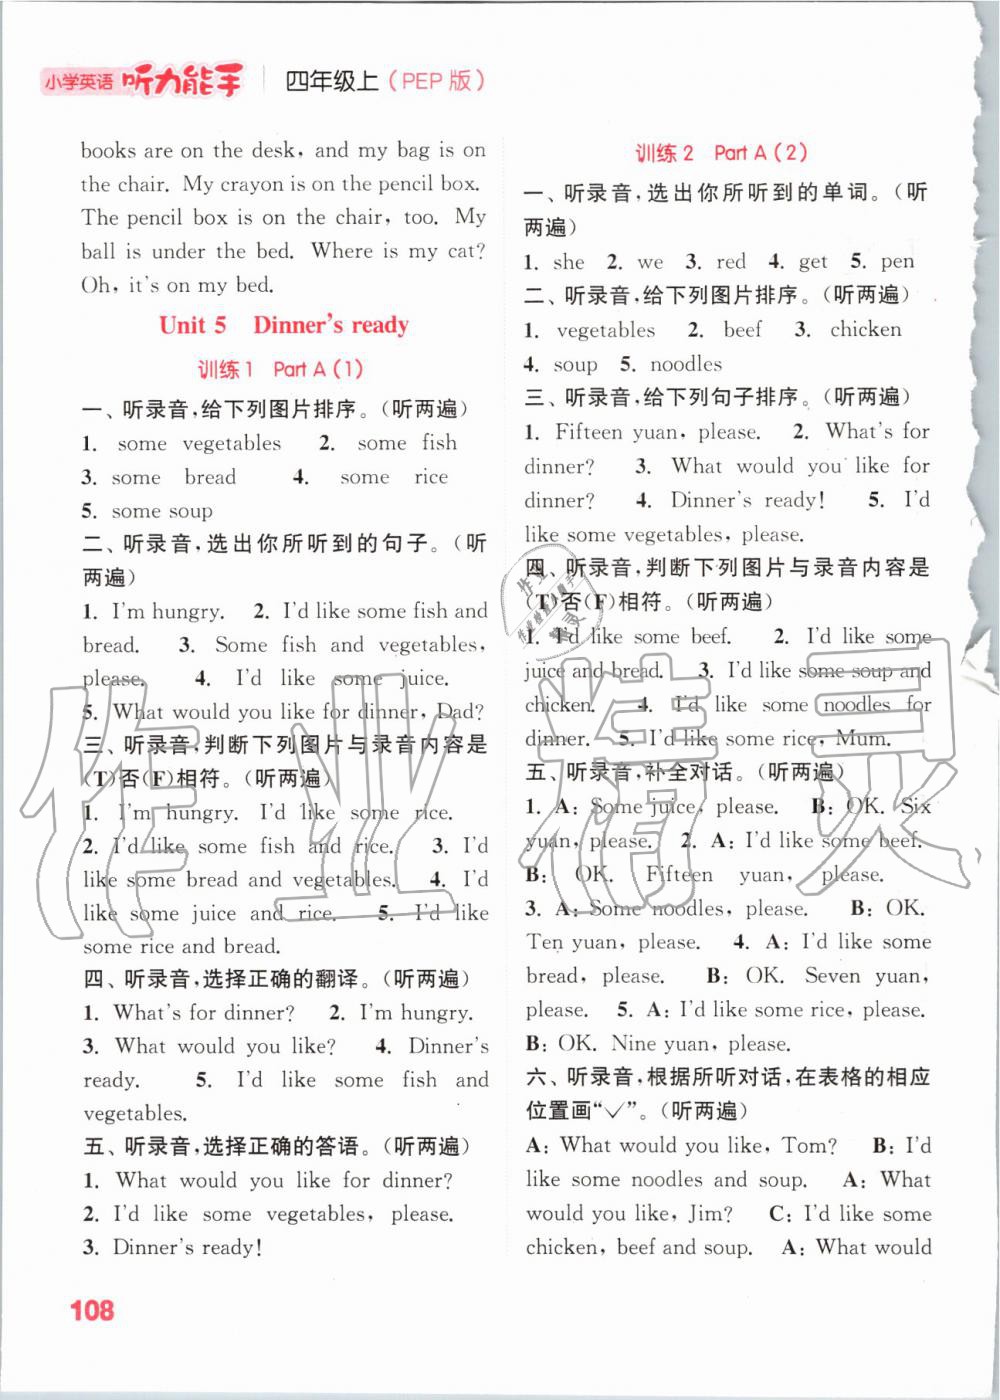 小学英语 听力能手 四年级上(PEP版)
books are on the desk, and my bag is on
the chair. My crayon is on the pencil box.
The pencil box is on the chair, too. My
ball is under the bed. Where is my cat?
Oh, it's on my bed.
Unit 5 Dinner's ready
训练1 Part A(1)
一、听录音,给下列图片排序。(听两遍)
1. some vegetables 2. some fish
3. some bread 4. some rice
5. some soup
二、听录音,选出你所听到的句子。(听
两遍)
1. I'm hungry. 2. I'd like some fish and
bread. 3. Some fish and vegetables,
please. 4. I'd like some juice.
5. What would you like for dinner, Dad?
三、听录音,判断下列图片与录音内容是
(T)否(F)相符。(听两遍)
1. I'm hungry. I'd like some rice.
2. I'd like some fish and rice. 3. I'd
like some bread and vegetables. 4. I'd
like some juice and rice. 5. I'd like
some rice and bread.
四、听录音,选择正确的翻译。(听两遍)
1. What's for dinner? 2. I'm hungry.
3. What would you like? 4. Dinner's
ready. 5. I'd like some fish and
vegetables.
五、听录音,选择正确的答语。(听两遍)
1. What would you like for dinner?
2. I'd like some vegetables, please.
3. Dinner's ready!
108
训练2 Part A(2)
一、听录音,选出你所听到的单词。(听
两遍)
1. she 2. we 3. red 4. get 5. pen
二、听录音,给下列图片排序。(听两遍)
1. vegetables 2. beef 3. chicken
4. soup 5. noodles
三、听录音,给下列句子排序。(听两遍)
1. Fifteen yuan, please. 2. What's for
dinner? 3. What would you like for
dinner? 4. Dinner's ready! 5. I'd
like some vegetables, please.
四、听录音,判断下列图片与录音内容是
(T)否(F)相符。(听两遍)
1. I'd like some beef. 2. I'd like some
juice and bread. 3. I'd like some soup and
chicken. 4. I'd like some noodles for
dinner. 5. I'd like some rice, Mum.
五、听录音,补全对话。(听两遍)
1. A: Some juice, please. B: OK. Six
yuan, please. 2. A: I'd like some beef.
B: OK. Fifteen yuan, please.
3. A: Some noodles, please. B: OK.
Ten yuan, please. 4. A: I'd like some
bread, please. B: OK. Seven yuan,
please. 5. A: I'd like some rice, please.
B: OK. Nine yuan, please.
六、听录音,根据所听对话,在表格的相应
位置画“✓”。(听两遍)
A: What would you like, Tom? B: I'd
like some noodles and soup. A: What
would you like, Jim? C: I'd like some
chicken, beef and soup. A: What would
作业精灵